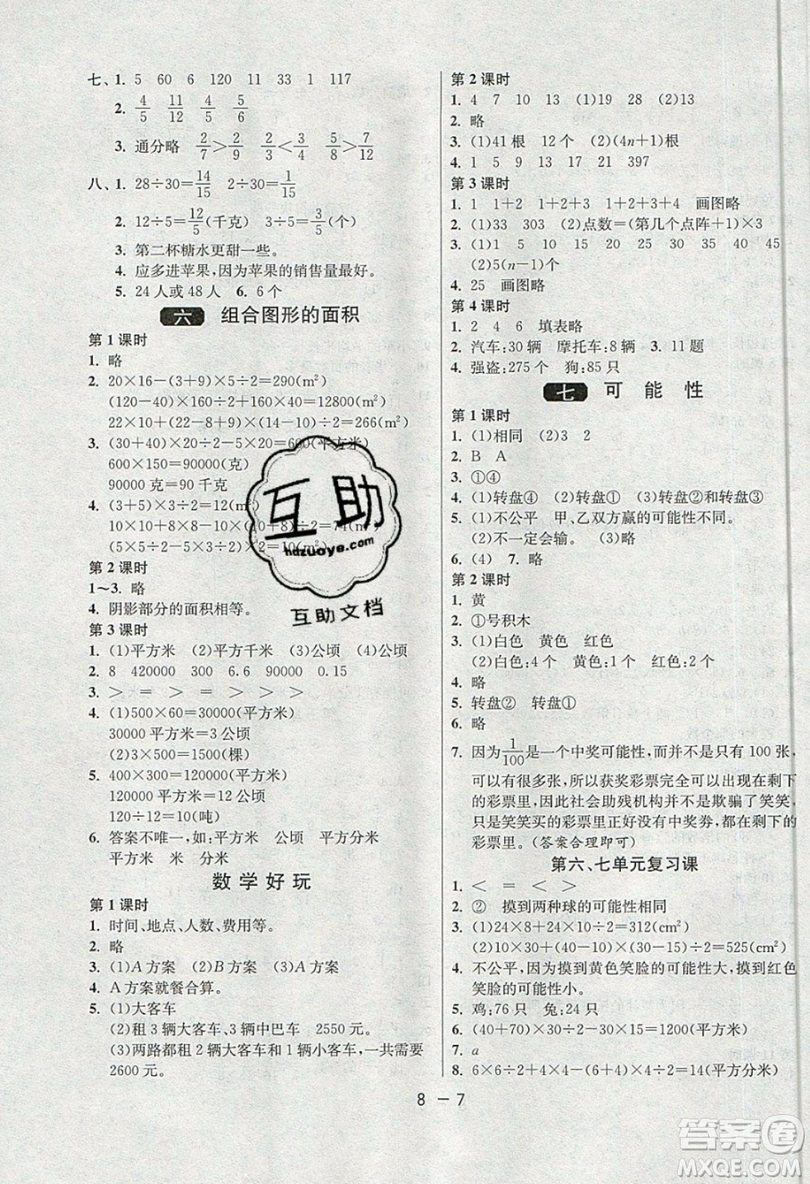 七、1. 5 60 6 120 11 33 1 117
2. 4/5 11/12 4/5 11/12
3. 通分略 2/7>2/9 2/3<3/4 5/8>7/12
八、1. 28÷30=14/15 2÷30=1/15
2. 12÷5=12/5(千克) 3÷5=3/5(个)
3. 第二杯糖水更甜一些。
4. 应多进苹果,因为苹果的销售量最好。
5. 24人或48人 6. 6个
六 组合图形的面积
第1课时
1. 略
2. 20×16-(3+9)×5÷2=290(m²)
(120-40)×(120+200)÷2=12800(m²)
22×10+(22-8+9)×(14-10)÷2=266(m²)
3. (30+40)×20÷2-5×20=600(平方米)
600×150=90000(克)
90000克=90千克
4. (3+5)×3÷2=12(
10×10+8×8-10×(10+8)÷2=
(5×5÷2-5×3÷2)×
第2课时
1~3. 略
4. 阴影部分的面积相等。
第3课时
1. (1)平方米 (2)平方千米 (3)公顷 (4)公顷
2. 8 420000 300 6.6 90000 0.15
3. > = > = > <
4. (1)500×60=30000(平方米)
30000平方米=3公顷
(2)3×500=1500(棵)
5. 400×300=120000(平方米)
120000平方米=12公顷
120÷12=10(吨)
6. 答案不唯一,如:平方米 公顷 平方千米
平方米 米 分米
数学好玩
第1课时
1. 时间、地点、人数、费用等。
2. 略
3. (1)A方案 (2)B方案 (3)A方案
4. A方案就餐合算。
5. (1)大客车
(2)租3辆大客车、3辆中巴车 2550元。
(3)两路都租2辆大客车和1辆小客车,一共需要
2600元。
第2课时
1. 4 7 10 13 (1)19 28 (2)13
2. 略
3. (1)41根 12个 (2)(4n+1)根
4. 1 5 9 13 17 21 397
第3课时
1. 1 1+2 1+2+3 1+2+3+4 画图略
2. (1)33 303 (2)点数=(第几个点阵+1)×3
3. (1)1 5 10 15 20 25 30 35 40 45
(2)5(n-1)(n>1)
4. 25 画图略
第4课时
1. 2 4 6 填表略
2. 汽车:30辆 摩托车:8辆 3. 11题
4. 强盗:275个 狗:85只
七 可能性
第1课时
1. (1)相同 (2)3 2
2. B A
3. ①④
4. (1)转盘④ (2)转盘③ (3)转盘②和转盘③
5. (1)不公平 甲、乙双方赢的可能性不同。
(2)不一定会输。 (3)略
6. (4) 7. 略
第2课时
1. 黄
2. ①号积木
3. (1)白色 黄色 红色
(2)白色:4个 黄色:1个 红色:2个
4. 略
5. 转盘② 转盘①
6. 略
7. 因为1/100是一个中奖可能性,而并不是只有100张,
可以有很多张,所以获奖彩票完全可以出现在剩下
的彩票里,因此社会助残机构并不是欺骗了笑笑,
只是笑笑买的彩票里正好没有中奖券,都在剩下的
彩票里。(答案合理即可)
第六、七单元复习课
1. < = < >
2. ② 摸到两种球的可能性相同
3. (1)24×8+24×10÷2=312(cm²)
(2)10×30+(40-10)×(30-15)÷2=525(cm²)
4. 不公平,因为摸到黄色笑脸的可能性大,摸到红
笑脸的可能性小。
5. 鸡:76只 兔:24只
6. (40+70)×30÷2-30×15=1200(平方米)
7. a
8. 6×6÷2+4×4-(6+4)×4÷2=14(平方分米)
互助
hdzuoye.com
互助文档
8-7
答案圈
MXQE.COM